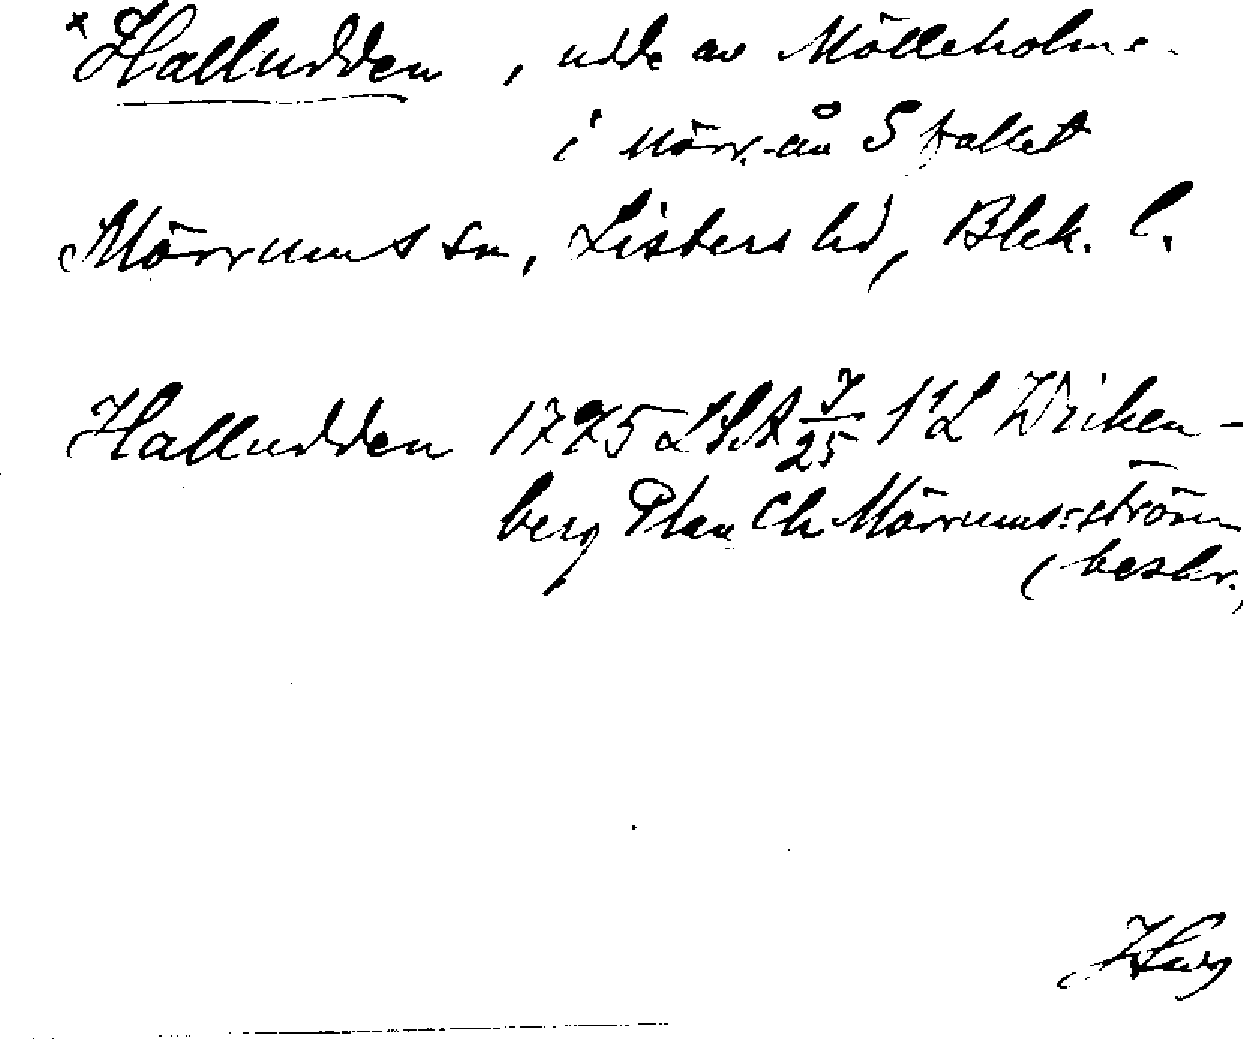 *Halludden, udde av Mölleholme
i Mörr.ån S fallet
Mörrums sn, Listers hd, Blek. l.
Halludden 1775 LSA I/25 1'L Wriken-
berg Plan Ch Mörrums-ström
(beskr.)